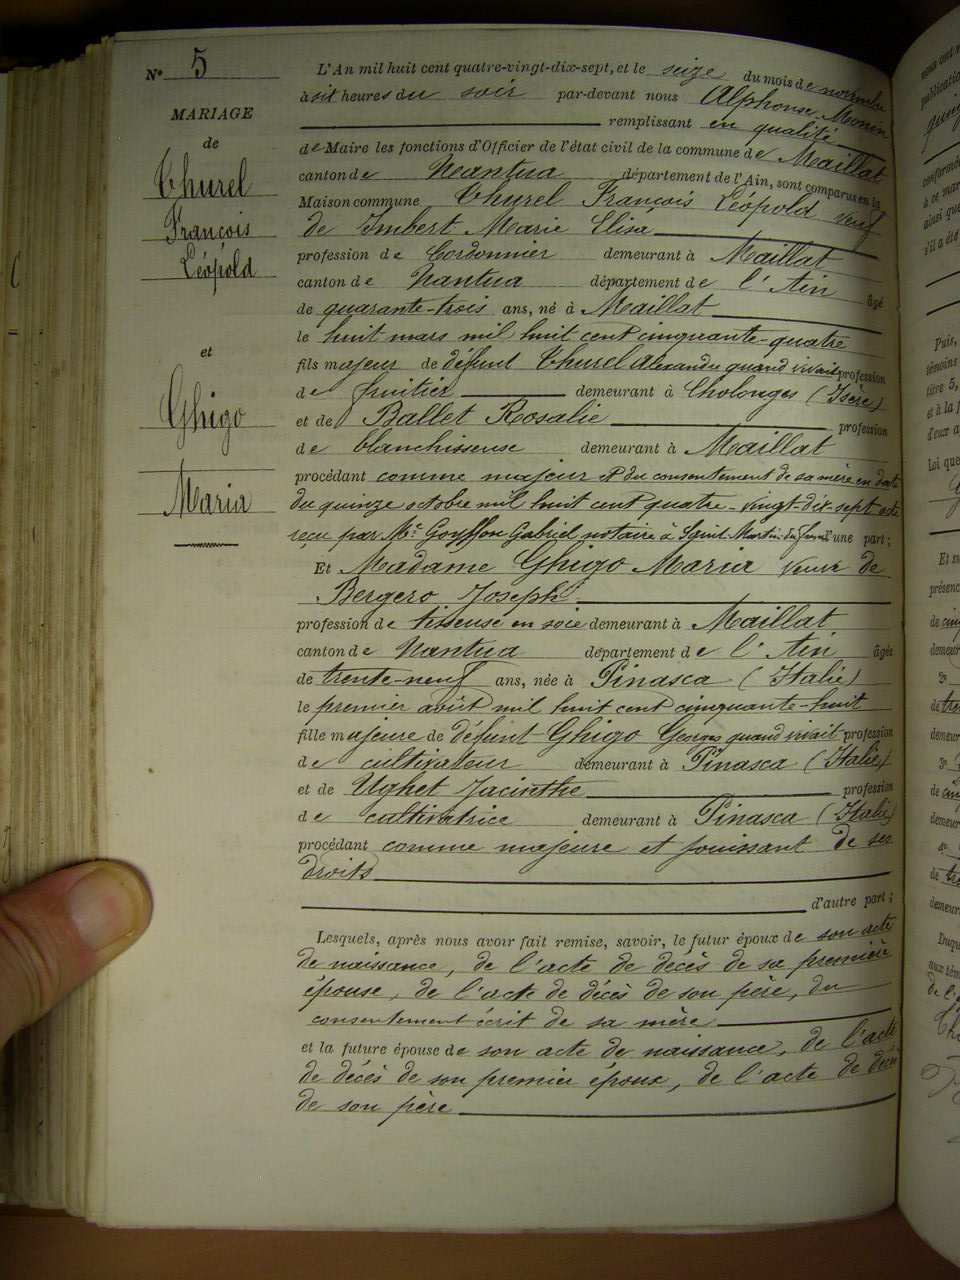 N° 5
MARIAGE
de
Thurel
François
Léopold
et
Ghigo
Maria
L'An mil huit cent quatre-vingt-dix-sept, et le seize du mois de novembre
à sit heures du soir par-devant nous Alphonse Monin
remplissant en qualité
de Maire les fonctions d'Officier de l'état civil de la commune de Maillat
canton de Nantua département de l'Ain, sont comparus en la
Maison commune Thurel François Léopold veuf
de Imbert Marie Elisa
profession de Cordonnier demeurant à Maillat
canton de Nantua département de l'Ain âgé
de quarante-trois ans, né à Maillat
le huit mars mil huit cent cinquante-quatre
fils majeur de défunt Thurel Alexandre quand vivait profession
de fruitier demeurant à Cholonges (Isère)
et de Ballet Rosalie profession
de blanchisseuse demeurant à Maillat
procédant comme majeur et du consentement de sa mère en date
du quinze octobre mil huit cent quatre-vingt-dix-sept acte
reçu par Me Gabriel notaire à Saint Martin du d'une part;
Et Madame Ghigo Maria veuve de
Bergero Joseph
profession de tisseuse en soie demeurant à Maillat
canton de Nantua département de l'Ain âgée
de trente-neuf ans, née à Pinasca (Italie)
le premier août mil huit cent cinquante-huit
fille majeure de défunt Ghigo Georges quand vivait profession
de cultivateur demeurant à Pinasca (Italie)
et de Ughet Jacinthe profession
de cultivatrice demeurant à Pinasca (Italie)
procédant comme majeure et jouissant de ses
droits
d'autre part;
Lesquels, après nous avoir fait remise, savoir, le futur époux de son acte
de naissance, de l'acte de décès de sa première
épouse, de l'acte de décès de son père, du
consentement écrit de sa mère
et la future épouse de son acte de naissance, de l'acte
de décès de son premier époux, de l'acte de décès
de son père